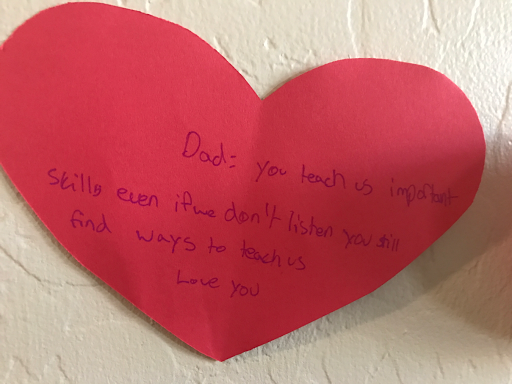 Dad: you teach us important
skills even if we don't listen you still
find ways to teach us
Love you